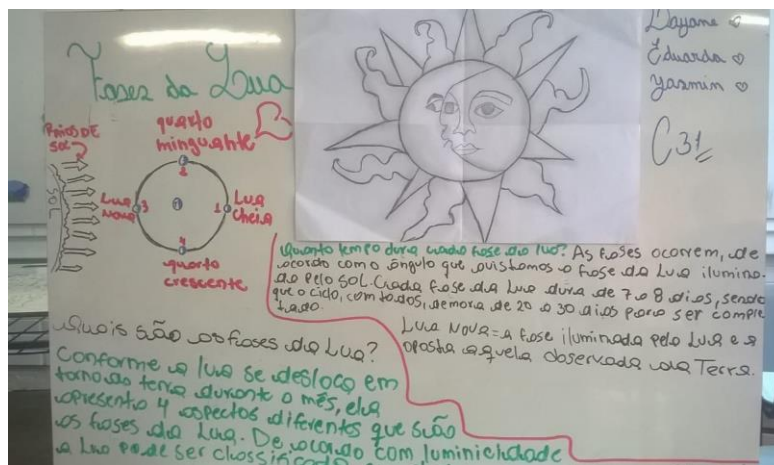 Fases da Lua
Dayane
Eduarda
Yasmin
C31
RAIOS DE
SOL
SOL
quarto
minguante
2
LUA
NOVA
3
1
LUA
cheia
4
quarto
crescente
Quanto tempo dura cada fase da lua? As fases ocorrem, de
acordo com o ângulo que avistamos a frase da Lua ilumina-
da pelo SOL. Cada frase da Lua dura de 7 a 8 dias, sendo
que o ciclo, com todos, demora de 20 a 30 dias para ser comple
tado.
LUA NOVA = a fase iluminada pelo Lua e a
oposta aquela observada na Terra.
Quais são as fases da Lua?
Conforme a lua se desloca em
torno da terra durante o mês, ela
apresenta 4 aspectos diferentes que são
as fases da Lua. De acordo com luminicidade
a Lua pode ser classificada